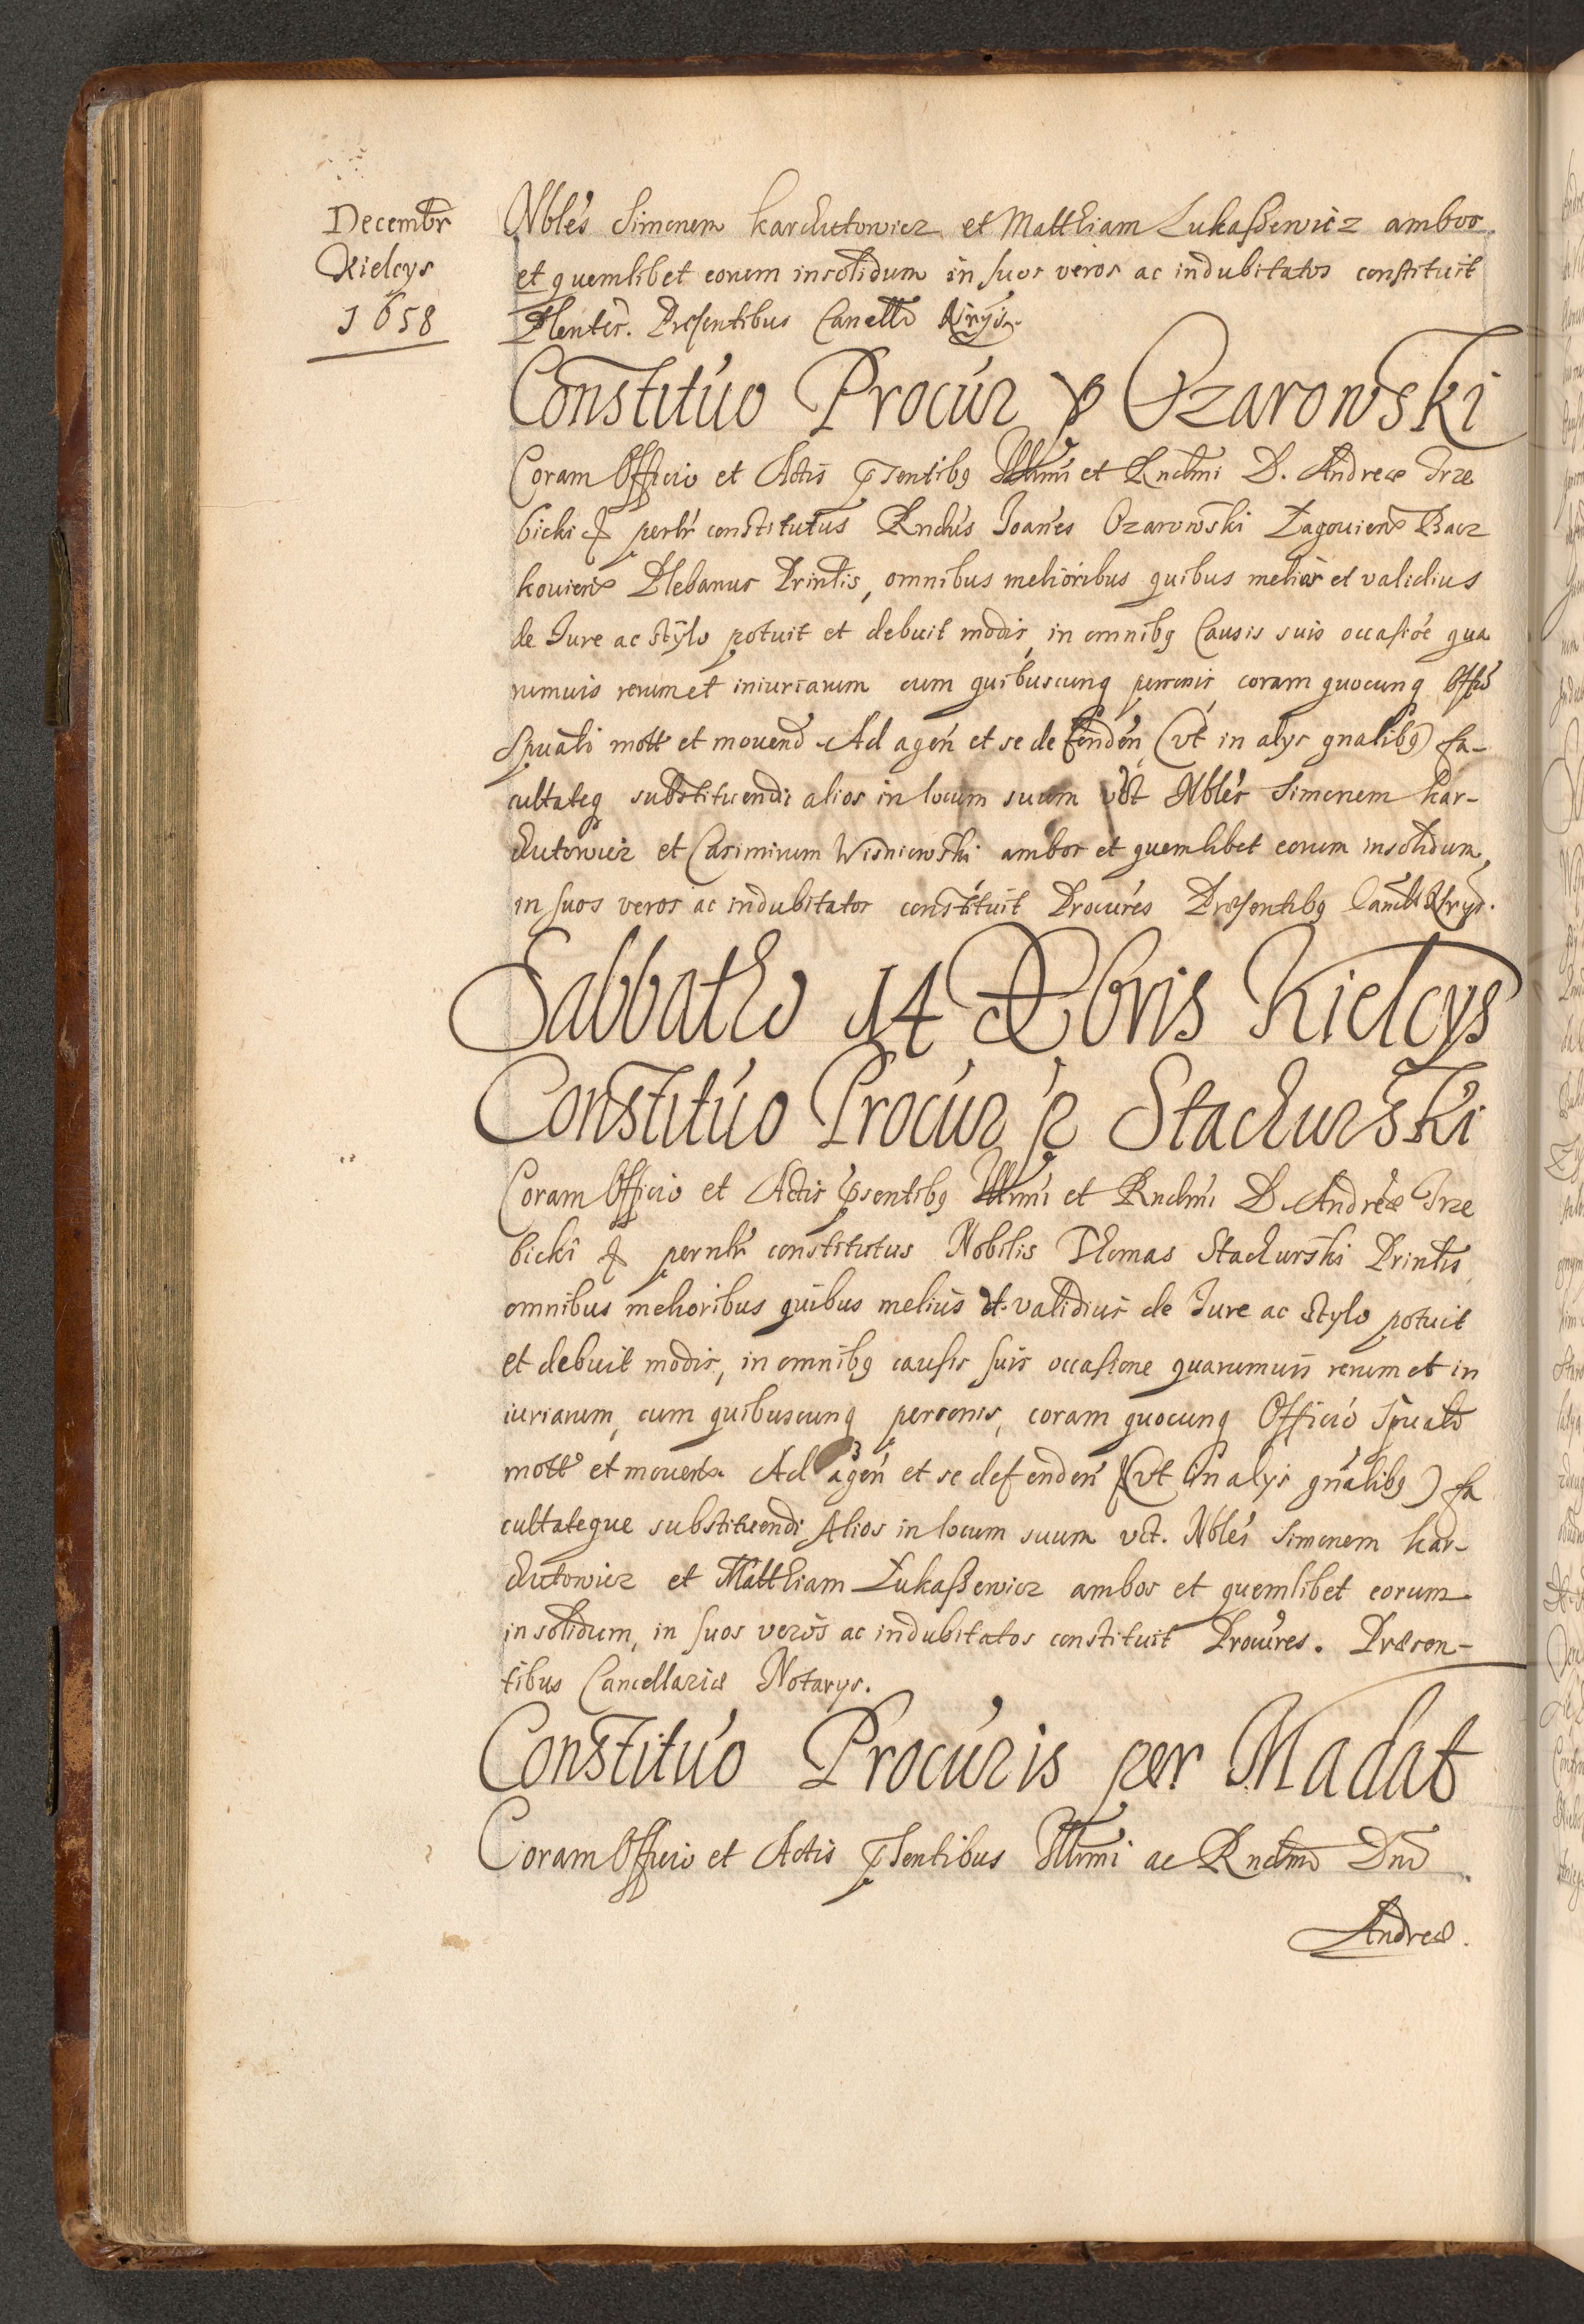 Decembr
Kielcys
1658
Nbles Simonem Karchutowicz et Matthiam Lukaßewicz ambos
et quemlibet eorum insolidum in suos veros ac indubitatos constituit
Plenter. Presentibus Cancell Nrys.
Constituo Procur p Ozarowski
Coram Officio et Actis psentibq Illmi et Rndmi D. Andreæ Trze
bicki & perlr constitutus Rndus Joanes Ozarowski Zagouiens Bacz
kouiens Plebanus Printis, omnibus melioribus quibus melius et validius
de Iure ac stylo potuit et debuit modis, in omnibq Causis suis occasióe qua
rumuis rerum et iniuriarum cum quibuscunq personis coram quocunq Offo
Spuali mott et mouend Ad agen et se defenden (vt in alys gnalibq) fa-
cultateq substituendi alios in locum suum vdt Nbles Simonem Kar-
chutowicz et Casimirum Wisniowski ambos et quemlibet eorum insolidum,
in suos veros ac indubitatos constituit Procures Præsentibq Cancll Nrys.
Sabbatho 14 Xbris Kielcys
Constituo Procur p Stachurski
Coram Officio et Actis psentibq Illmi et Rndmi D. Andreæ Trze
bicki & pernlr constitutus Nobilis Thomas Stachurski Printis
omnibus melioribus quibus melius et validius de Iure ac Stylo potuit
et debuit modis, in omnibq causis suis occasione quarumuis rerum et in
iuriarum, cum quibuscunq personis, coram quocunq Officio Spuali
mott et mouend Ad agen et se defenden (vt in alys gnalibq) fa
cultateque substituendi Alios in locum suum vct. Nbles Simonem Kar-
chutowicz et Matthiam Lukaßewicz ambos et quemlibet eorum
in solidum, in suos veros ac indubitatos constituit Procures. Præsen-
tibus Cancellariæ Notarys.
Constituo Procuris per Madat
Coram Officio et Actis psentibus Illmi ac Rndmi Dni
Andreæ.